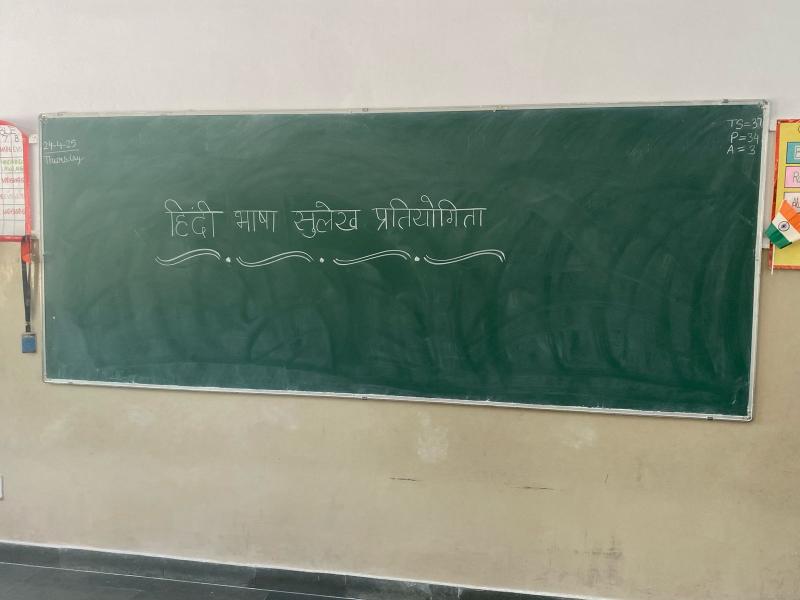 24-4-25
Thursday
TS=37
P=34
A=3
हिंदी भाषा सुलेख प्रतियोगिता